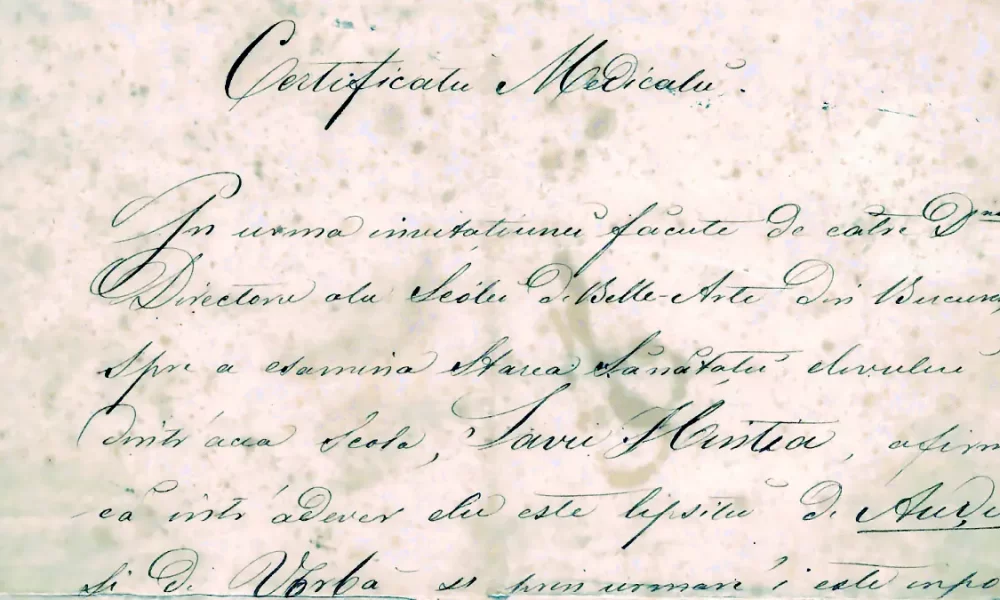 Certificatu Medicalŭ.
In urma invitatiunei făcute de către Dnu
Directore alu Scólei de Belle-Arte din Bucure
spre a esamina starea sănătătii elevului
dintr'acea scola, Savu Hentia, afirm
că intr'adever elu este lipsitu de Audi
si de Vorbă si prin urmare i este impo